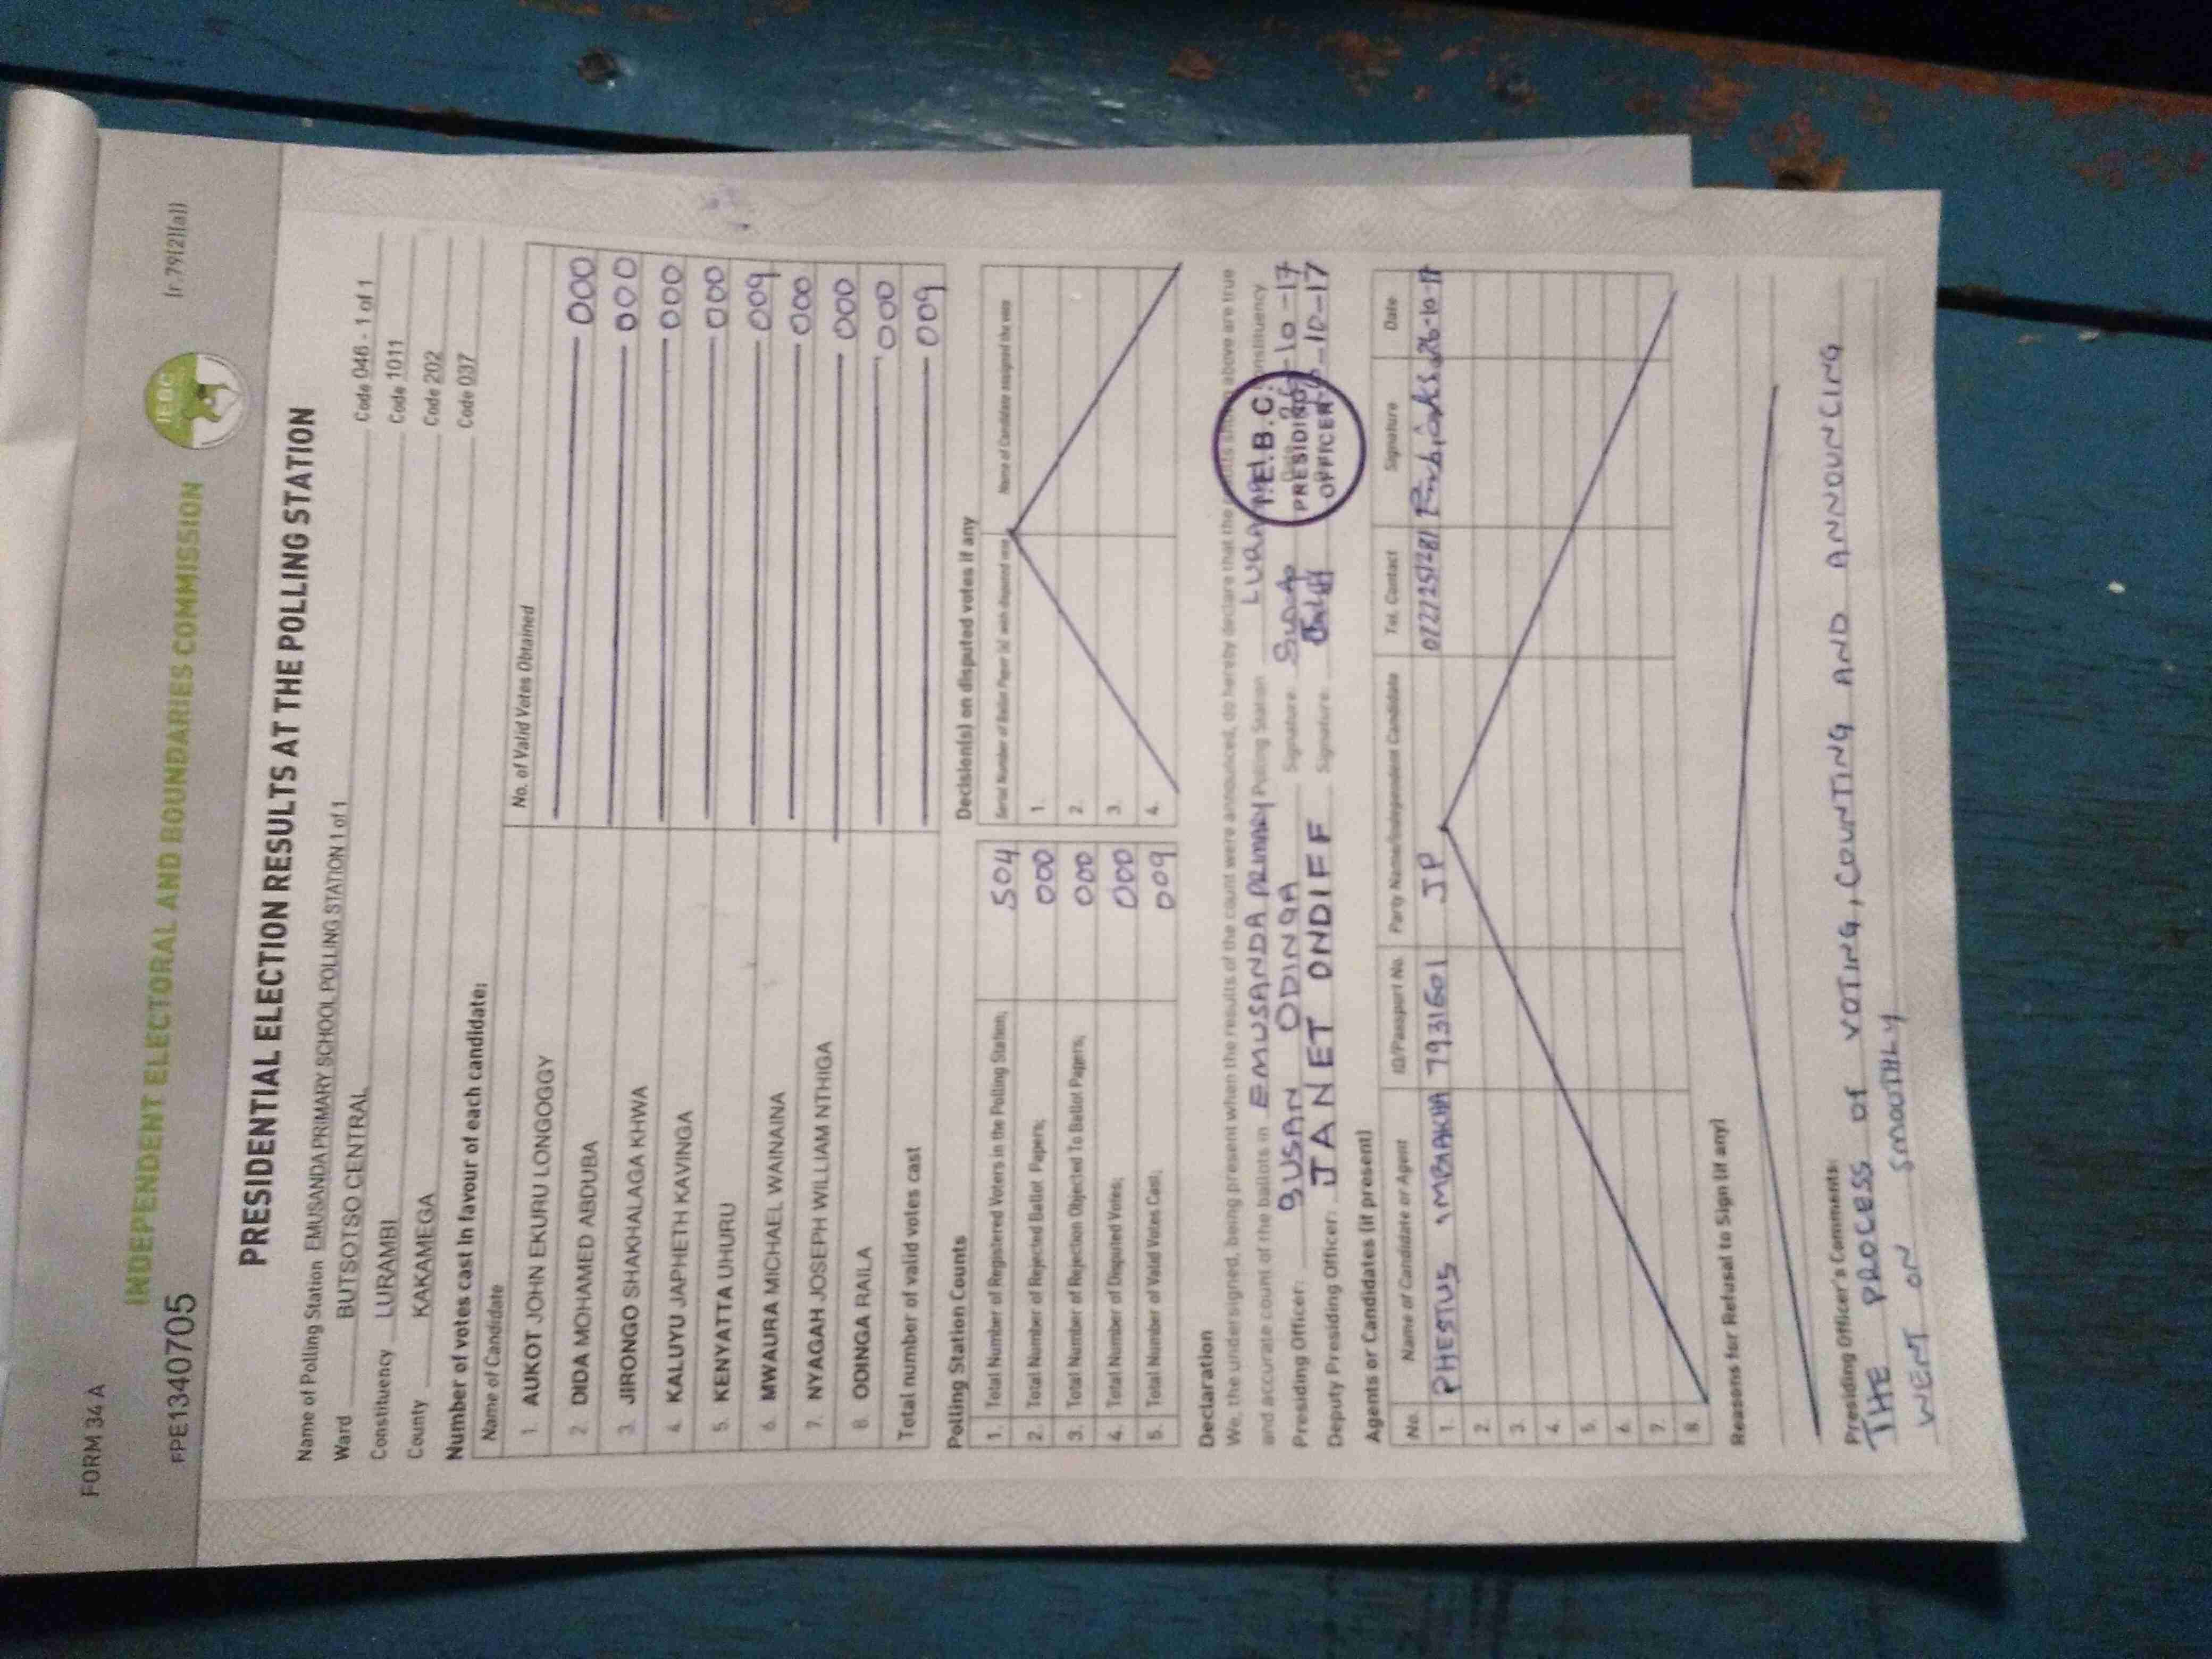 FORM 34 A
(r 79(2)(a))
FPE1340705
INDEPENDENT ELECTORAL AND BOUNDARIES COMMISSION
IEBC
PRESIDENTIAL ELECTION RESULTS AT THE POLLING STATION
Name of Polling Station EMUSANDA PRIMARY SCHOOL POLLING STATION 1 of 1 Code 046 - 1 of 1
Ward BUTSOTSO CENTRAL Code 1011
Constituency LURAMBI Code 202
County KAKAMEGA Code 037
Number of votes cast in favour of each candidate:
Name of Candidate No. of Valid Votes Obtained
1. AUKOT JOHN EKURU LONGOGGY 000
2. DIDA MOHAMED ABDUBA 000
3. JIRONGO SHAKHALAGA KHWA 000
4. KALUYU JAPHETH KAVINGA 000
5. KENYATTA UHURU 009
6. MWAURA MICHAEL WAINAINA 000
7. NYAGAH JOSEPH WILLIAM NTHIGA 000
8. ODINGA RAILA 000
Total number of valid votes cast 009
Polling Station Counts
1. Total Number of Registered Voters in the Polling Station; 504
2. Total Number of Rejected Ballot Papers; 000
3. Total Number of Rejection Objected To Ballot Papers; 000
4. Total Number of Disputed Votes; 000
5. Total Number of Valid Votes Cast; 009
Decision(s) on disputed votes if any
Serial Number of Ballot Paper (s) with disputed vote Name of Candidate assigned the vote
1.
2.
3.
4.
Declaration
We, the undersigned, being present when the results of the count were announced, do hereby declare that the results shown above are true
and accurate count of the ballots in EMUSANDA PRIMARY Polling Station Constituency
Presiding Officer: SUSAN ODINGA Signature: -10-17
Deputy Presiding Officer: JANET ONDIFF Signature: -10-17
I.E.B.C.
PRESIDING
OFFICER
Agents or Candidates (if present)
No. Name of Candidate or Agent ID/Passport No. Party Name/Independent Candidate Tel. Contact Signature Date
1. PHESTUS 7931601 JP 26-10-17
2.
3.
4.
5.
6.
7.
8.
Reasons for Refusal to Sign (if any)
Presiding Officer's Comments:
THE PROCESS OF VOTING, COUNTING AND ANNOUNCING
WENT ON SMOOTHLY